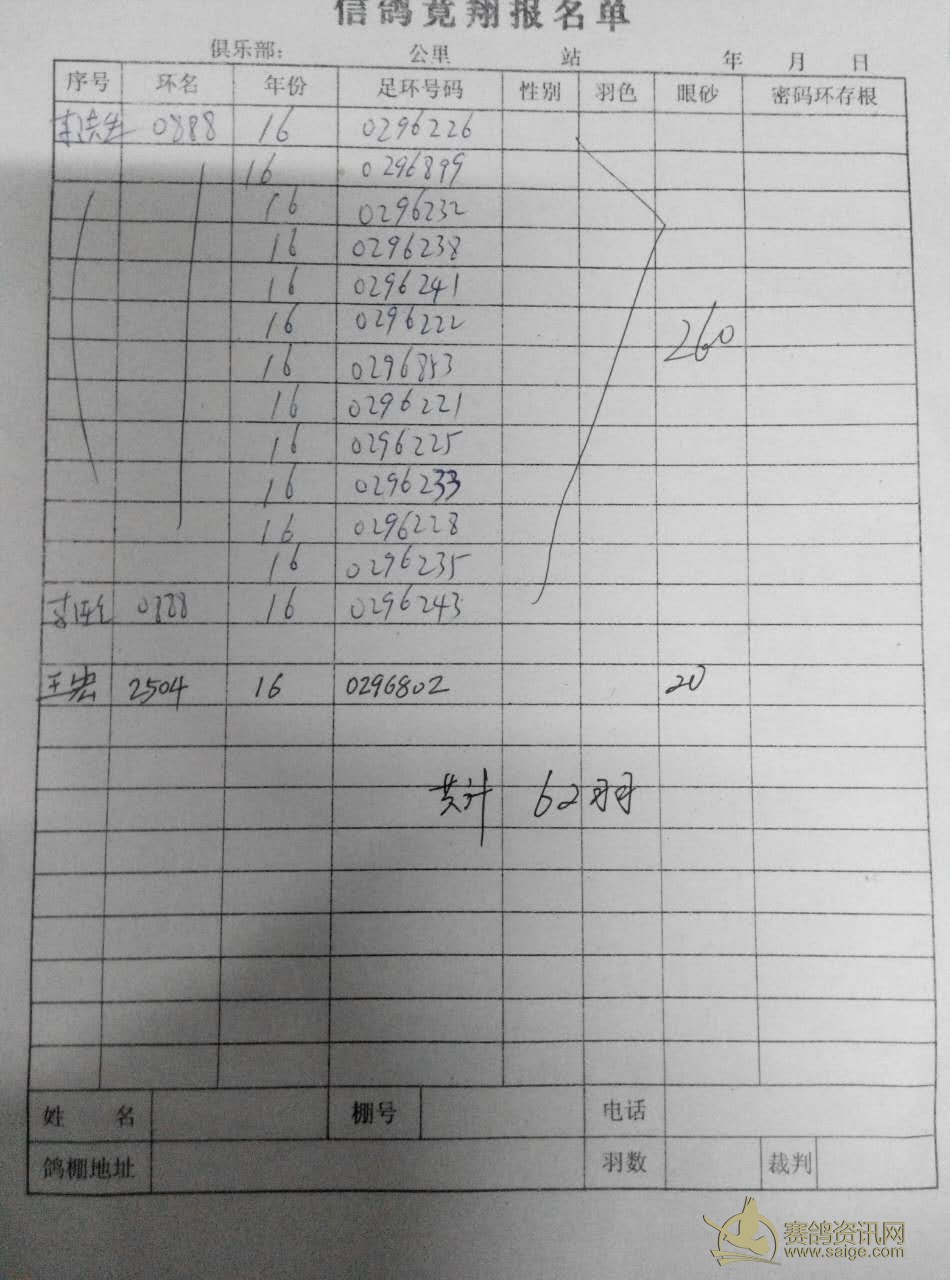 信鸽竞翔报名单
俱乐部: 公里 站 年 月 日
序号 环名 年份 足环号码 性别 羽色 眼砂 密码环存根
0888 16 0296226
16 0296899
16 0296232
16 0296238
16 0296241
16 0296222
260
16 0296853
16 0296221
16 0296225
16 0296233
16 0296228
16 0296235
0888 16 0296243
王宏 2504 16 0296802 20
共计 62羽
姓 名 棚号 电话
鸽棚地址 羽数 裁判
赛鸽资讯网
www.saige.com